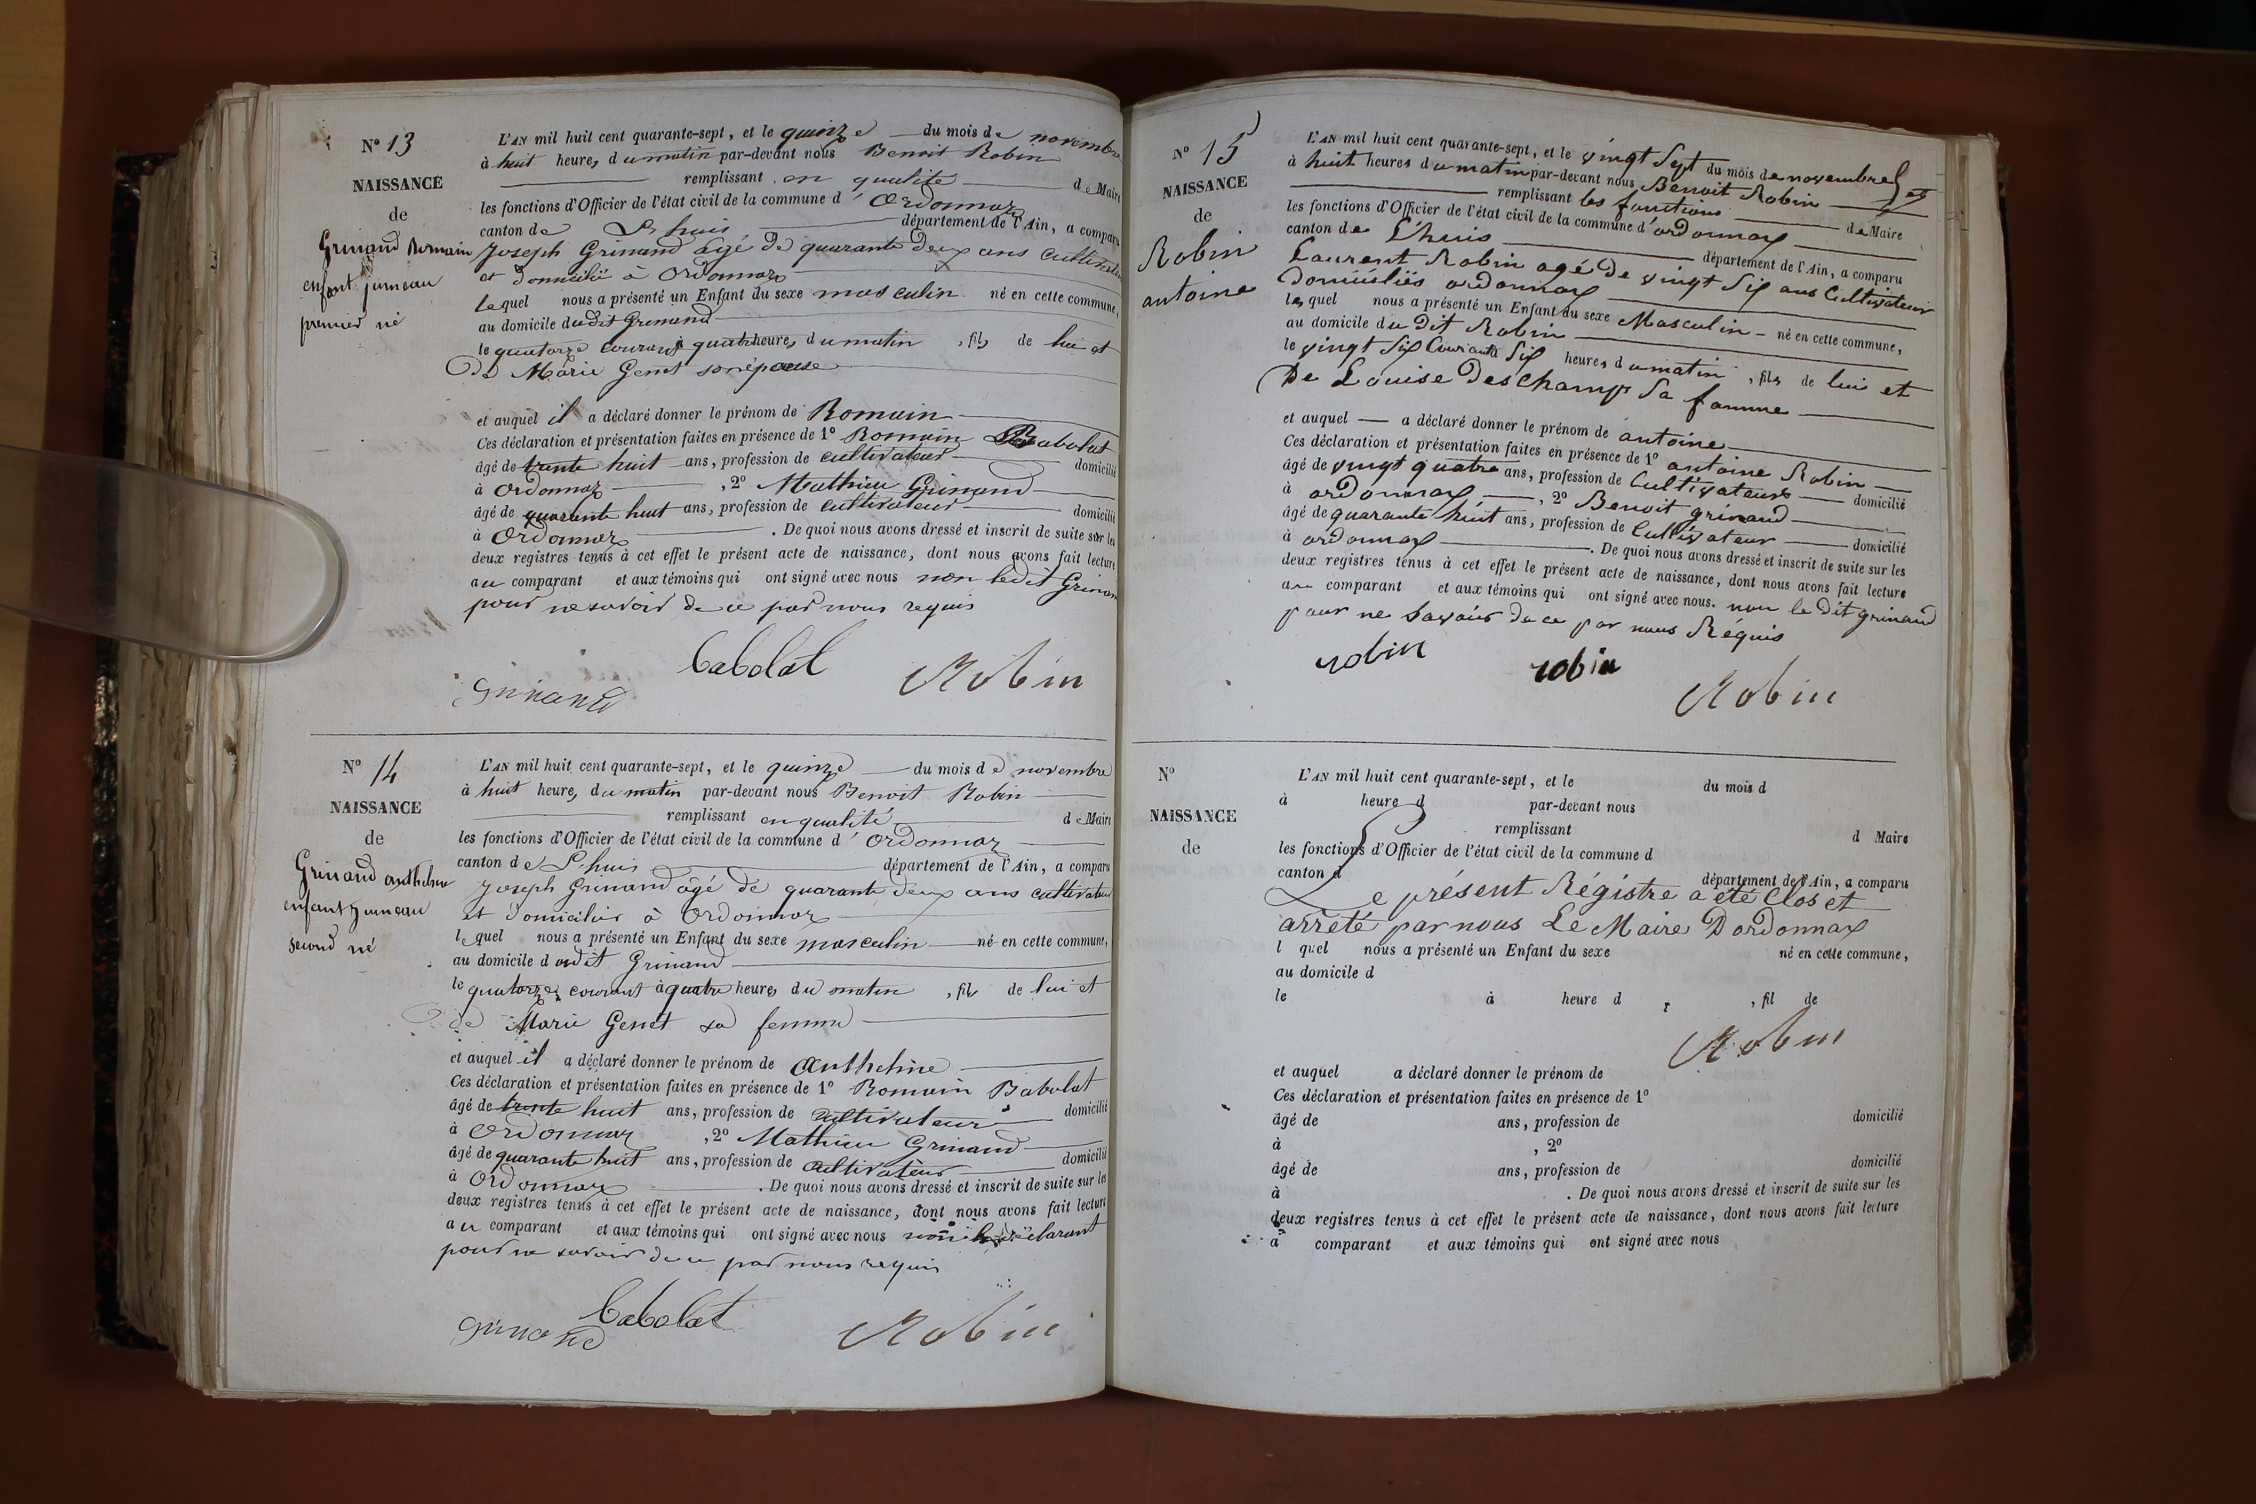 N° 13
NAISSANCE
de
Grinand Romain
enfant jumeau
premier né
L'AN mil huit cent quarante-sept, et le quinze du mois de novembre
à huit heures du matin par-devant nous Benoit Robin
remplissant en qualité de Maire
les fonctions d'Officier de l'état civil de la commune d' Ordonnaz
canton de Lhuis département de l'Ain, a comparu
Joseph Grinand âgé de quarante deux ans cultivateur
et domicilié à Ordonnaz
lequel nous a présenté un Enfant du sexe masculin né en cette commune,
au domicile dudit Grinand
le quatorze courant à quatre heures du matin, fils de lui et
de Marie Genet son épouse
et auquel il a déclaré donner le prénom de Romain
Ces déclaration et présentation faites en présence de 1° Romain Babolat
âgé de trente huit ans, profession de cultivateur domicilié
à Ordonnaz, 2° Mathieu Grinand
âgé de quarante huit ans, profession de cultivateur domicilié
à Ordonnaz. De quoi nous avons dressé et inscrit de suite sur les
deux registres tenus à cet effet le présent acte de naissance, dont nous avons fait lecture
au comparant et aux témoins qui ont signé avec nous non ledit Grinand
pour ne savoir de ce par nous requis
babolat
Robin
grinand
N° 14
NAISSANCE
de
Grinand anthelme
enfant jumeau
second né
L'AN mil huit cent quarante-sept, et le quinze du mois de novembre
à huit heures du matin par-devant nous Benoit Robin
remplissant en qualité de Maire
les fonctions d'Officier de l'état civil de la commune d' Ordonnaz
canton de Lhuis département de l'Ain, a comparu
Joseph Grinand âgé de quarante deux ans cultivateur
et domicilié à Ordonnaz
lequel nous a présenté un Enfant du sexe masculin né en cette commune,
au domicile dudit Grinand
le quatorze courant à quatre heures du matin, fils de lui et
de Marie Genet sa femme
et auquel il a déclaré donner le prénom de Anthelme
Ces déclaration et présentation faites en présence de 1° Romain Babolat
âgé de trente huit ans, profession de cultivateur domicilié
à Ordonnaz, 2° Mathieu Grinand
âgé de quarante huit ans, profession de cultivateur domicilié
à Ordonnaz. De quoi nous avons dressé et inscrit de suite sur les
deux registres tenus à cet effet le présent acte de naissance, dont nous avons fait lecture
au comparant et aux témoins qui ont signé avec nous non le déclarant
pour ne savoir de ce par nous requis
babolat
grinand
Robin
N° 15
NAISSANCE
de
Robin
antoine
L'AN mil huit cent quarante-sept, et le vingt Sept du mois de novembre
à huit heures du matin par-devant nous Benoit Robin
remplissant les fonctions de Maire
les fonctions d'Officier de l'état civil de la commune d' ordonnax
canton de L'huis département de l'Ain, a comparu
Laurent Robin agé De vingt Six ans Cultivateur
Domiciliés ordonnax
lequel nous a présenté un Enfant du sexe Masculin né en cette commune,
au domicile du Dit Robin
le vingt Six Courant à Six heures du matin, fils de lui et
De Louise Deschamp Sa famme
et auquel a déclaré donner le prénom de antoine
Ces déclaration et présentation faites en présence de 1° antoine Robin
âgé de vingt quatre ans, profession de Cultivateur domicilié
à ordonnax, 2° Benoit grinand
âgé de quarante huit ans, profession de Cultivateur domicilié
à ordonnax. De quoi nous avons dressé et inscrit de suite sur les
deux registres tenus à cet effet le présent acte de naissance, dont nous avons fait lecture
au comparant et aux témoins qui ont signé avec nous. non le dit grinand
pour ne Savoir de ce par nous Réquis
robin
robin
Robin
N°
NAISSANCE
de
L'AN mil huit cent quarante-sept, et le du mois d
à heure d par-devant nous
remplissant d Maire
les fonctions d'Officier de l'état civil de la commune d
canton d département de l'Ain, a comparu
Le présent Régistre a été Clos et
arrété par nous Le Maire D'ordonnax
l quel nous a présenté un Enfant du sexe né en cette commune,
au domicile d
le à heure d , fil de
Robin
et auquel a déclaré donner le prénom de
Ces déclaration et présentation faites en présence de 1°
âgé de ans, profession de domicilié
à , 2°
âgé de ans, profession de domicilié
à . De quoi nous avons dressé et inscrit de suite sur les
deux registres tenus à cet effet le présent acte de naissance, dont nous avons fait lecture
a comparant et aux témoins qui ont signé avec nous